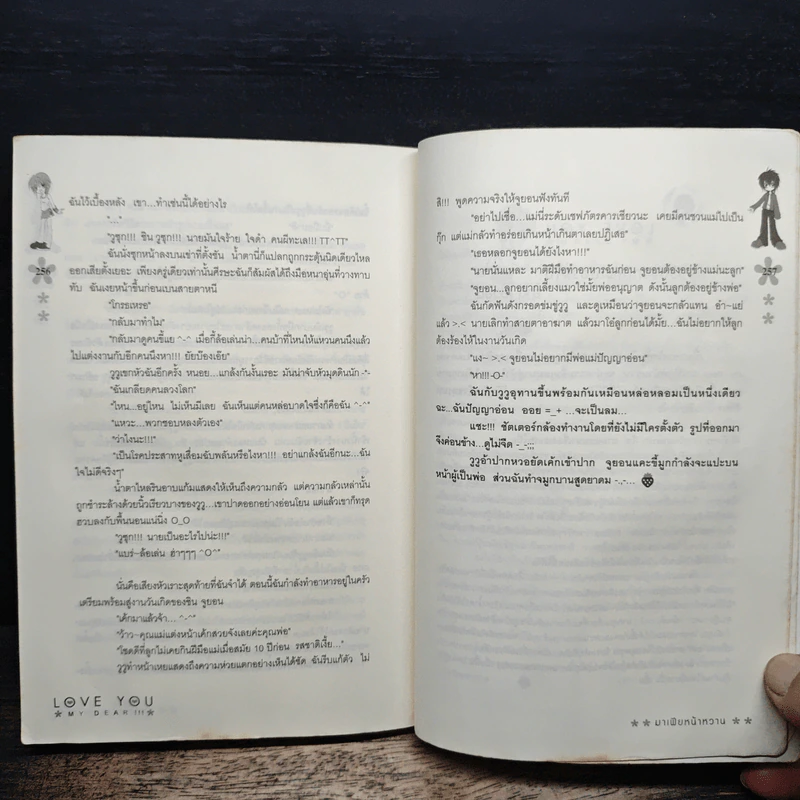 ฉันไว้เบื้องหลัง เขา...ทำเช่นนี้ได้อย่างไร
"..."
"วูซุก!!! ชิน วูซุก!!! นายมันใจร้าย ใจดำ คนผีทะเล!!! TT^TT"
ฉันนั่งซุกหน้าลงบนเข่าที่ตั้งชัน น้ำตานี่ก็แปลกถูกกระตุ้นนิดเดียวไหล
ออกเสียตั้งเยอะ เพียงครู่เดียวเท่านั้นศีรษะฉันก็สัมผัสได้ถึงมือหนาอุ่นที่วางทาบ
ทับ ฉันเงยหน้าขึ้นก่อนเบนสายตาหนี
"โกรธเหรอ"
"กลับมาทำไม"
"กลับมาดูคนขี้แย ^-^ เมื่อกี้ล้อเล่นน่า...คนบ้าที่ไหนให้แหวนคนนึงแล้ว
ไปแต่งงานกับอีกคนนึงหา!!! ยัยบ๊องเอ๊ย"
วูวูเขกหัวฉันอีกครั้ง หนอย...แกล้งกันงั้นเรอะ มันน่าจับหัวมุดดินนัก -*-
"ฉันเกลียดคนลวงโลก"
"ไหน...อยู่ไหน ไม่เห็นมีเลย ฉันเห็นแต่คนหล่อบาดใจซึ่งก็คือฉัน ^-^"
"แหวะ...พวกชอบหลงตัวเอง"
"ว่าไงนะ!!!"
"เป็นโรคประสาทหูเสื่อมฉับพลันหรือไงหา!!! อย่าแกล้งฉันอีกนะ...ฉัน
ใจไม่ดีจริงๆ"
น้ำตาไหลรินอาบแก้มแสดงให้เห็นถึงความกลัว แต่ความกลัวเหล่านั้น
ถูกชำระล้างด้วยนิ้วเรียวบางของวูวู...เขาปาดออกอย่างอ่อนโยน แต่แล้วเขาก็ทรุด
ฮวบลงกับพื้นนอนแน่นิ่ง O_O
"วูซุก!!! นายเป็นอะไรไปน่ะ!!!"
"แบร่~ล้อเล่น ฮ่าๆๆๆ ^O^"
นั่นคือเสียงหัวเราะสุดท้ายที่ฉันจำได้ ตอนนี้ฉันกำลังทำอาหารอยู่ในครัว
เตรียมพร้อมสู่งานวันเกิดของชิน จูยอน
"เค้กมาแล้วจ้า... ^-^"
"ว้าว~คุณแม่แต่งหน้าเค้กสวยจังเลยค่ะคุณพ่อ"
"โชคดีที่ลูกไม่เคยกินฝีมือแม่เมื่อสมัย 10 ปีก่อน รสชาติเงี้ย..."
วูวูทำหน้าเหยแสดงถึงความห่วยแตกอย่างเห็นได้ชัด ฉันรีบแก้ตัว ไม่
256
LOVE YOU
MY DEAR !!!
สิ!!! พูดความจริงให้จูยอนฟังทันที
"อย่าไปเชื่อ...แม่นี่ระดับเชฟภัตรคารเชียวนะ เคยมีคนชวนแม่ไปเป็น
กุ๊ก แต่แม่กลัวทำอร่อยเกินหน้าเกินตาเลยปฏิเสธ"
"เธอหลอกจูยอนได้ยังไงหา!!!"
"นายนั่นแหละ มาติฝีมือทำอาหารฉันก่อน จูยอนต้องอยู่ข้างแม่นะลูก"
"จูยอน...ลูกอยากเลี้ยงแมวใช่มั้ยพ่ออนุญาต ดังนั้นลูกต้องอยู่ข้างพ่อ"
ฉันกัดฟันดังกรอดข่มขู่วูวู และดูเหมือนว่าจูยอนจะกลัวแทน อ๋า~แย่
แล้ว >.< นายเลิกทำสายตาอาฆาต แล้วมาโอ๋ลูกก่อนได้มั้ย...ฉันไม่อยากให้ลูก
ต้องร้องไห้ในงานวันเกิด
"แง~ >.< จูยอนไม่อยากมีพ่อแม่ปัญญาอ่อน"
"หา!!!-O-"
ฉันกับวูวูอุทานขึ้นพร้อมกันเหมือนหล่อหลอมเป็นหนึ่งเดียว
ฉะ...ฉันปัญญาอ่อน ออย =_+ ...จะเป็นลม...
แชะ!!! ชัตเตอร์กล้องทำงานโดยที่ยังไม่มีใครตั้งตัว รูปที่ออกมา
จึงค่อนข้าง...ดูไม่จืด -_-;;;
วูวูอ้าปากหวอยัดเค้กเข้าปาก จูยอนแคะขี้มูกกำลังจะแปะบน
หน้าผู้เป็นพ่อ ส่วนฉันทำจมูกบานสูดยาดม -.,-...
257
มาเฟียหน้าหวาน